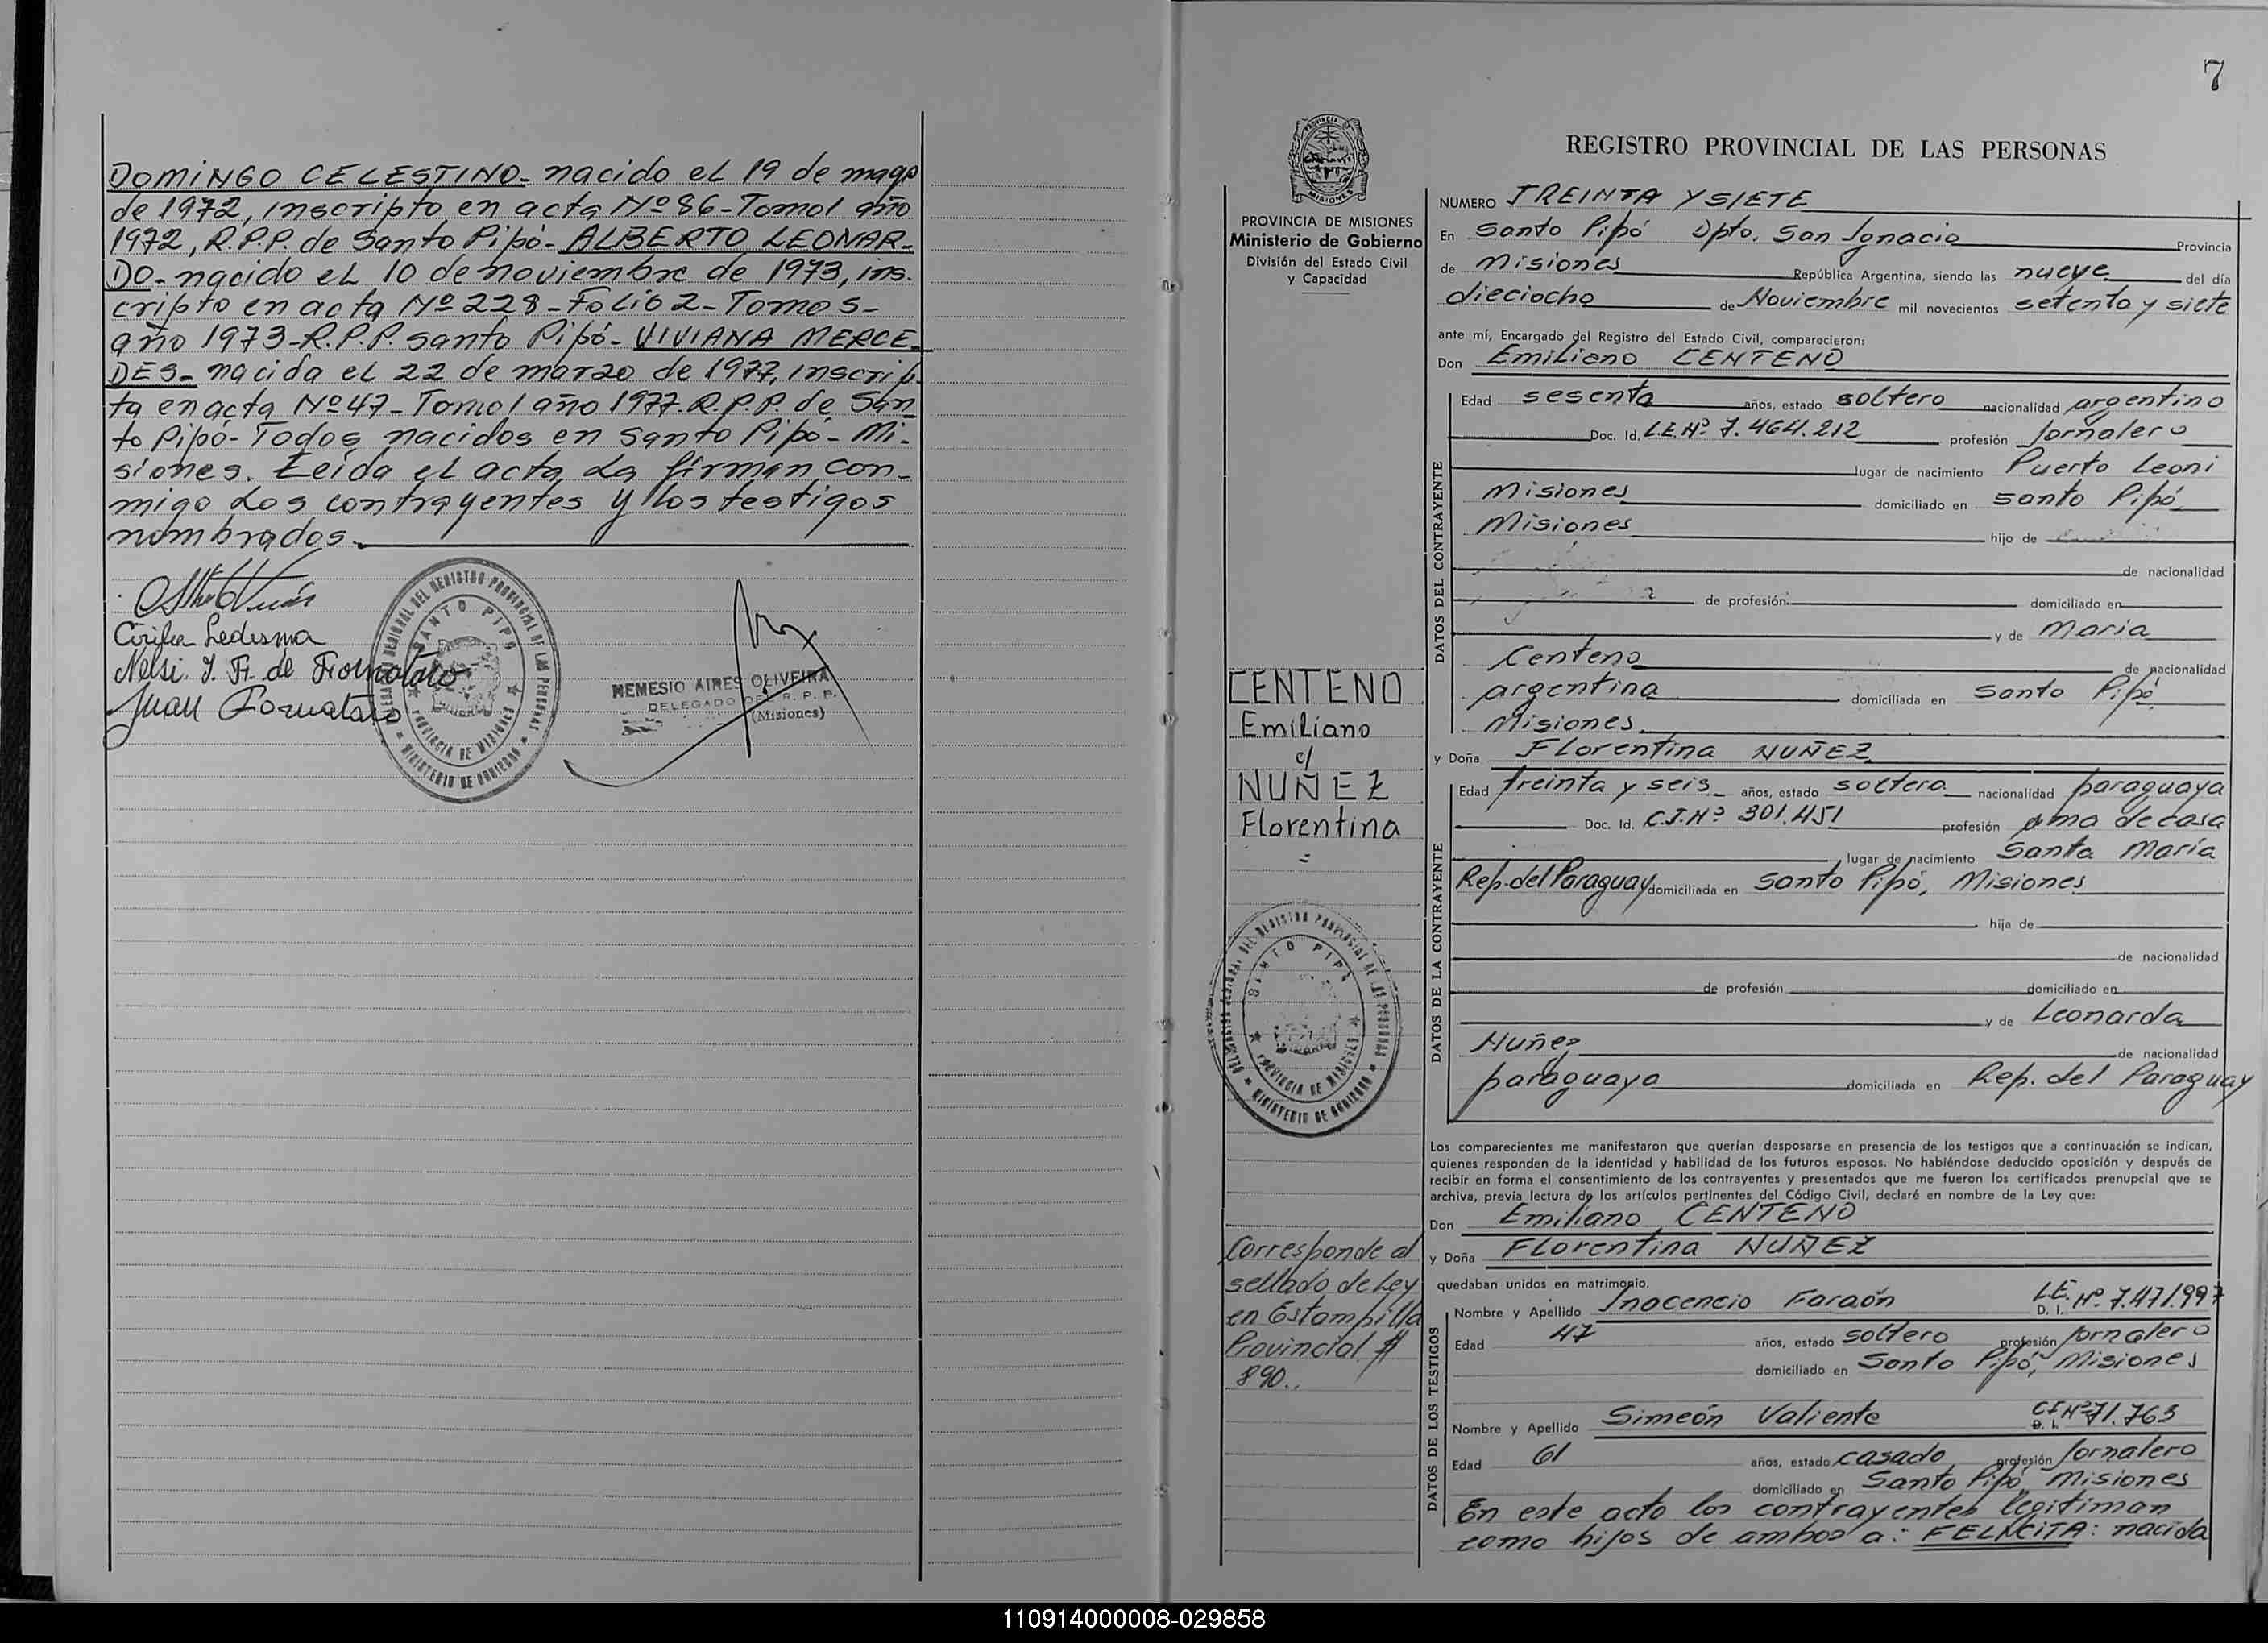 DOMINGO CELESTINO- nacido el 19 de mayo
de 1972, inscripto en acta Nº 86-Tomo 1 año
1972, R.P.P. de Santo Pipó- ALBERTO LEONAR-
DO- nacido el 10 de noviembre de 1973, ins-
cripto en acta Nº 228-Folio 2-Tomo S-
año 1973-R.P.P. Santo Pipó- VIVIANA MERCE-
DES- nacida el 22 de marzo de 1977, inscrip-
ta en acta Nº 47-Tomo 1 año 1977.R.P.P. de San-
to Pipó- Todos nacidos en Santo Pipó- Mi-
siones. Leída el acta la firman con-
migo los contrayentes y los testigos
nombrados.
Ledesma
Nelsi. J. Fr. de Fornataro
Juan Fornataro
DELEGACION REGIONAL DEL REGISTRO PROVINCIAL DE LAS PERSONAS
SANTO PIPO
PROVINCIA DE MISIONES
MINISTERIO DE GOBIERNO
NEMESIO AIRES OLIVEIRA
DELEGADO DEL R. P. P.
(Misiones)
7
PROVINCIA DE
MISIONES
PROVINCIA DE MISIONES
Ministerio de Gobierno
División del Estado Civil
y Capacidad
CENTENO
Emiliano
c/
NUÑEZ
Florentina
=
DELEGACION REGIONAL DEL REGISTRO PROVINCIAL DE LAS PERSONAS
SANTO PIPO
PROVINCIA DE MISIONES
MINISTERIO DE GOBIERNO
Corresponde al
sellado de Ley
en Estampilla
Provincial $
890..
REGISTRO PROVINCIAL DE LAS PERSONAS
NUMERO TREINTA Y SIETE
En Santo Pipó Dpto. San Ignacio Provincia
de Misiones República Argentina, siendo las nueve del día
dieciocho de Noviembre mil novecientos setenta y siete
ante mí, Encargado del Registro del Estado Civil, comparecieron:
Don Emiliano CENTENO
DATOS DEL CONTRAYENTE
Edad sesenta años, estado soltero nacionalidad argentino
Doc. Id. L.E.Nº 7.464.212 profesión Jornalero
lugar de nacimiento Puerto Leoni
Misiones domiciliado en Santo Pipó
Misiones hijo de
de nacionalidad
de profesión domiciliado en
y de María
Centeno de nacionalidad
argentina domiciliada en Santo Pipó
Misiones.
y Doña Florentina NUÑEZ
DATOS DE LA CONTRAYENTE
Edad treinta y seis años, estado soltera nacionalidad paraguaya
Doc. Id. C.I.Nº 301.451 profesión ama de casa
lugar de nacimiento Santa María
Rep. del Paraguay domiciliada en Santo Pipó, Misiones
hija de
de nacionalidad
de profesión domiciliado en
y de Leonarda
Nuñez de nacionalidad
paraguaya domiciliada en Rep. del Paraguay
Los comparecientes me manifestaron que querían desposarse en presencia de los testigos que a continuación se indican,
quienes responden de la identidad y habilidad de los futuros esposos. No habiéndose deducido oposición y después de
recibir en forma el consentimiento de los contrayentes y presentados que me fueron los certificados prenupcial que se
archiva, previa lectura de los artículos pertinentes del Código Civil, declaré en nombre de la Ley que:
Don Emiliano CENTENO
y Doña Florentina NUÑEZ
quedaban unidos en matrimonio.
DATOS DE LOS TESTIGOS
Nombre y Apellido Inocencio Faraón D. I. L.E. Nº 7.471.997
Edad 47 años, estado soltero profesión Jornalero
domiciliado en Santo Pipó, Misiones
Nombre y Apellido Simeón Valiente D. I. C.I Nº 71.763
Edad 61 años, estado casado profesión Jornalero
domiciliado en Santo Pipó, Misiones
En este acto los contrayentes legitiman
como hijos de ambos a: FELICITA: nacida
110914000008-029858